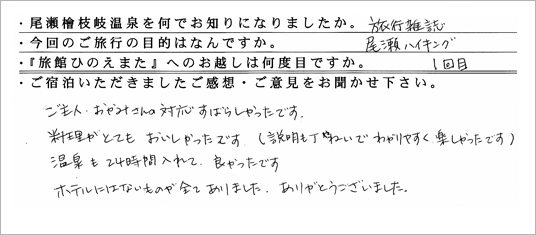 ・尾瀬檜枝岐温泉を何でお知りになりましたか。 旅行雑誌
・今回のご旅行の目的はなんですか。 尾瀬ハイキング
・『旅館ひのえまた』へのお越しは何度目ですか。 1回目
・ご宿泊いただきましたご感想・ご意見をお聞かせ下さい。
ご主人・おかみさんの対応すばらしかったです。
料理がとてもおいしかったです（説明も丁ねいでわかりやすく楽しかったです）
温泉も24時間入れて、良かったです
ホテルにはないものが全てありました。ありがとうございました。